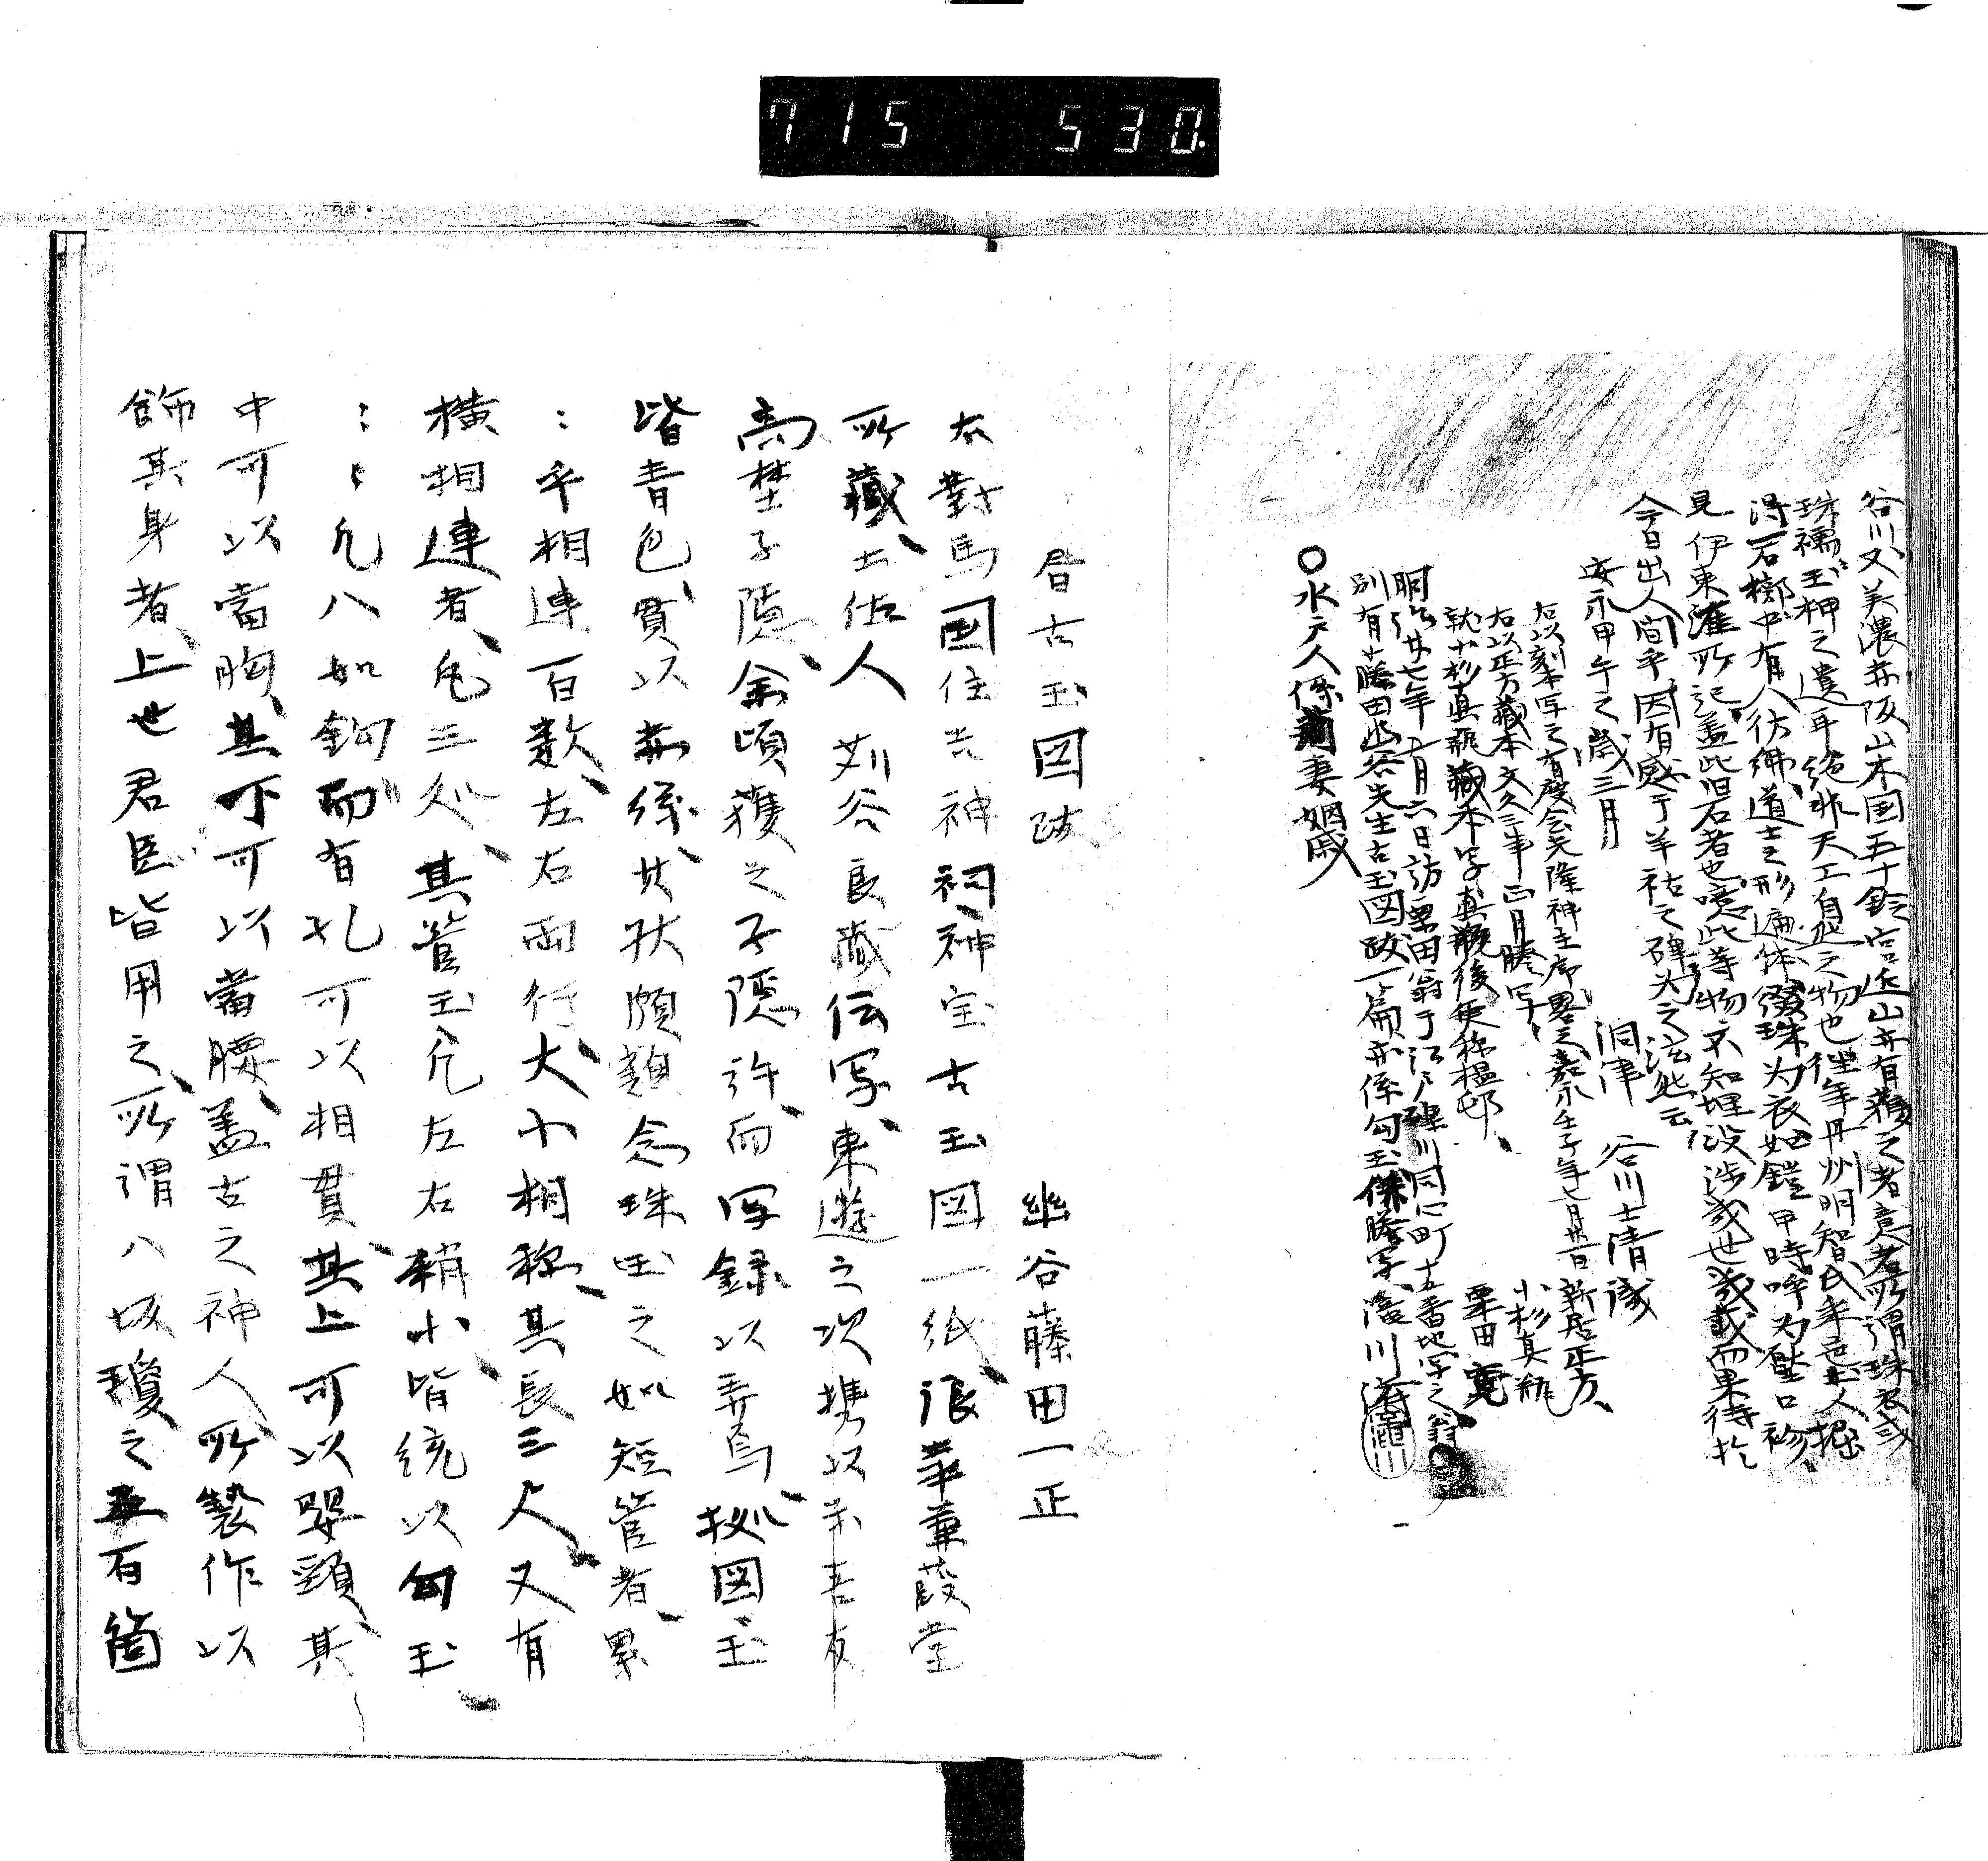 715 530.
谷川又美濃赤阪山本国五十鈴宮近山亦有獲之者意者所謂珠衣或
珠襦玉柙之遺耳絶非天工自然之物也往年丹州明智氏采邑土人掘
得石槨中有人彷彿道士之形遍体綴珠为衣如鎧甲時啐为塵口診
見伊東 所記盖此旧石者也噫此等物不知埋没渉或世或載而果待於
今日出人间乎因有感于羊祜之碑为之泣然云
安永甲午之歳三月 洞津 谷川士清識
右以刻本写之有度会久隆神主序畧之嘉永壬子年七月廿日 新居正方
右以正方藏本文久三年正月謄写 小杉真瓶
就小杉真瓶藏本写真瓶後更称榲邨 栗田寛
明治廿七年 月六日訪栗田翁于江戸礫川同心町十五番地写之翁
別有藤田幽谷先生古玉図跋一篇亦係勾玉係謄写 澹川
○水戸人係 妻姻戚
昏古玉図跋 幽谷藤田一正
右對馬國住吉神祠神宝古玉図一紙浪華蒹葭堂
所藏土佐人刘谷良藏伝写東遊之次携以示吾友
高埜子隠余頃獲之子隠許而写録以弄焉扨図玉
皆青色貫以赤絲其状頗類念珠玉之如短管者累
：乎相連百数左右両行大小相称其長三尺又有
横相連者凡三処其管玉凡左右稍小皆統以勾玉
：：凡八如鈎而有孔可以相貫其上可以嬰頸其
中可以當胸其下可以當腰盖古之神人所製作以
飾其身者上世君臣皆用之所謂八坂瓊之五百箇